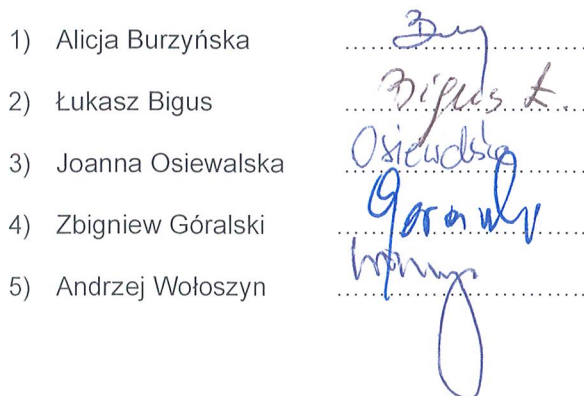 1) Alicja Burzyńska
2) Łukasz Bigus Bigus Ł.
3) Joanna Osiewalska Osiewalska
4) Zbigniew Góralski
5) Andrzej Wołoszyn